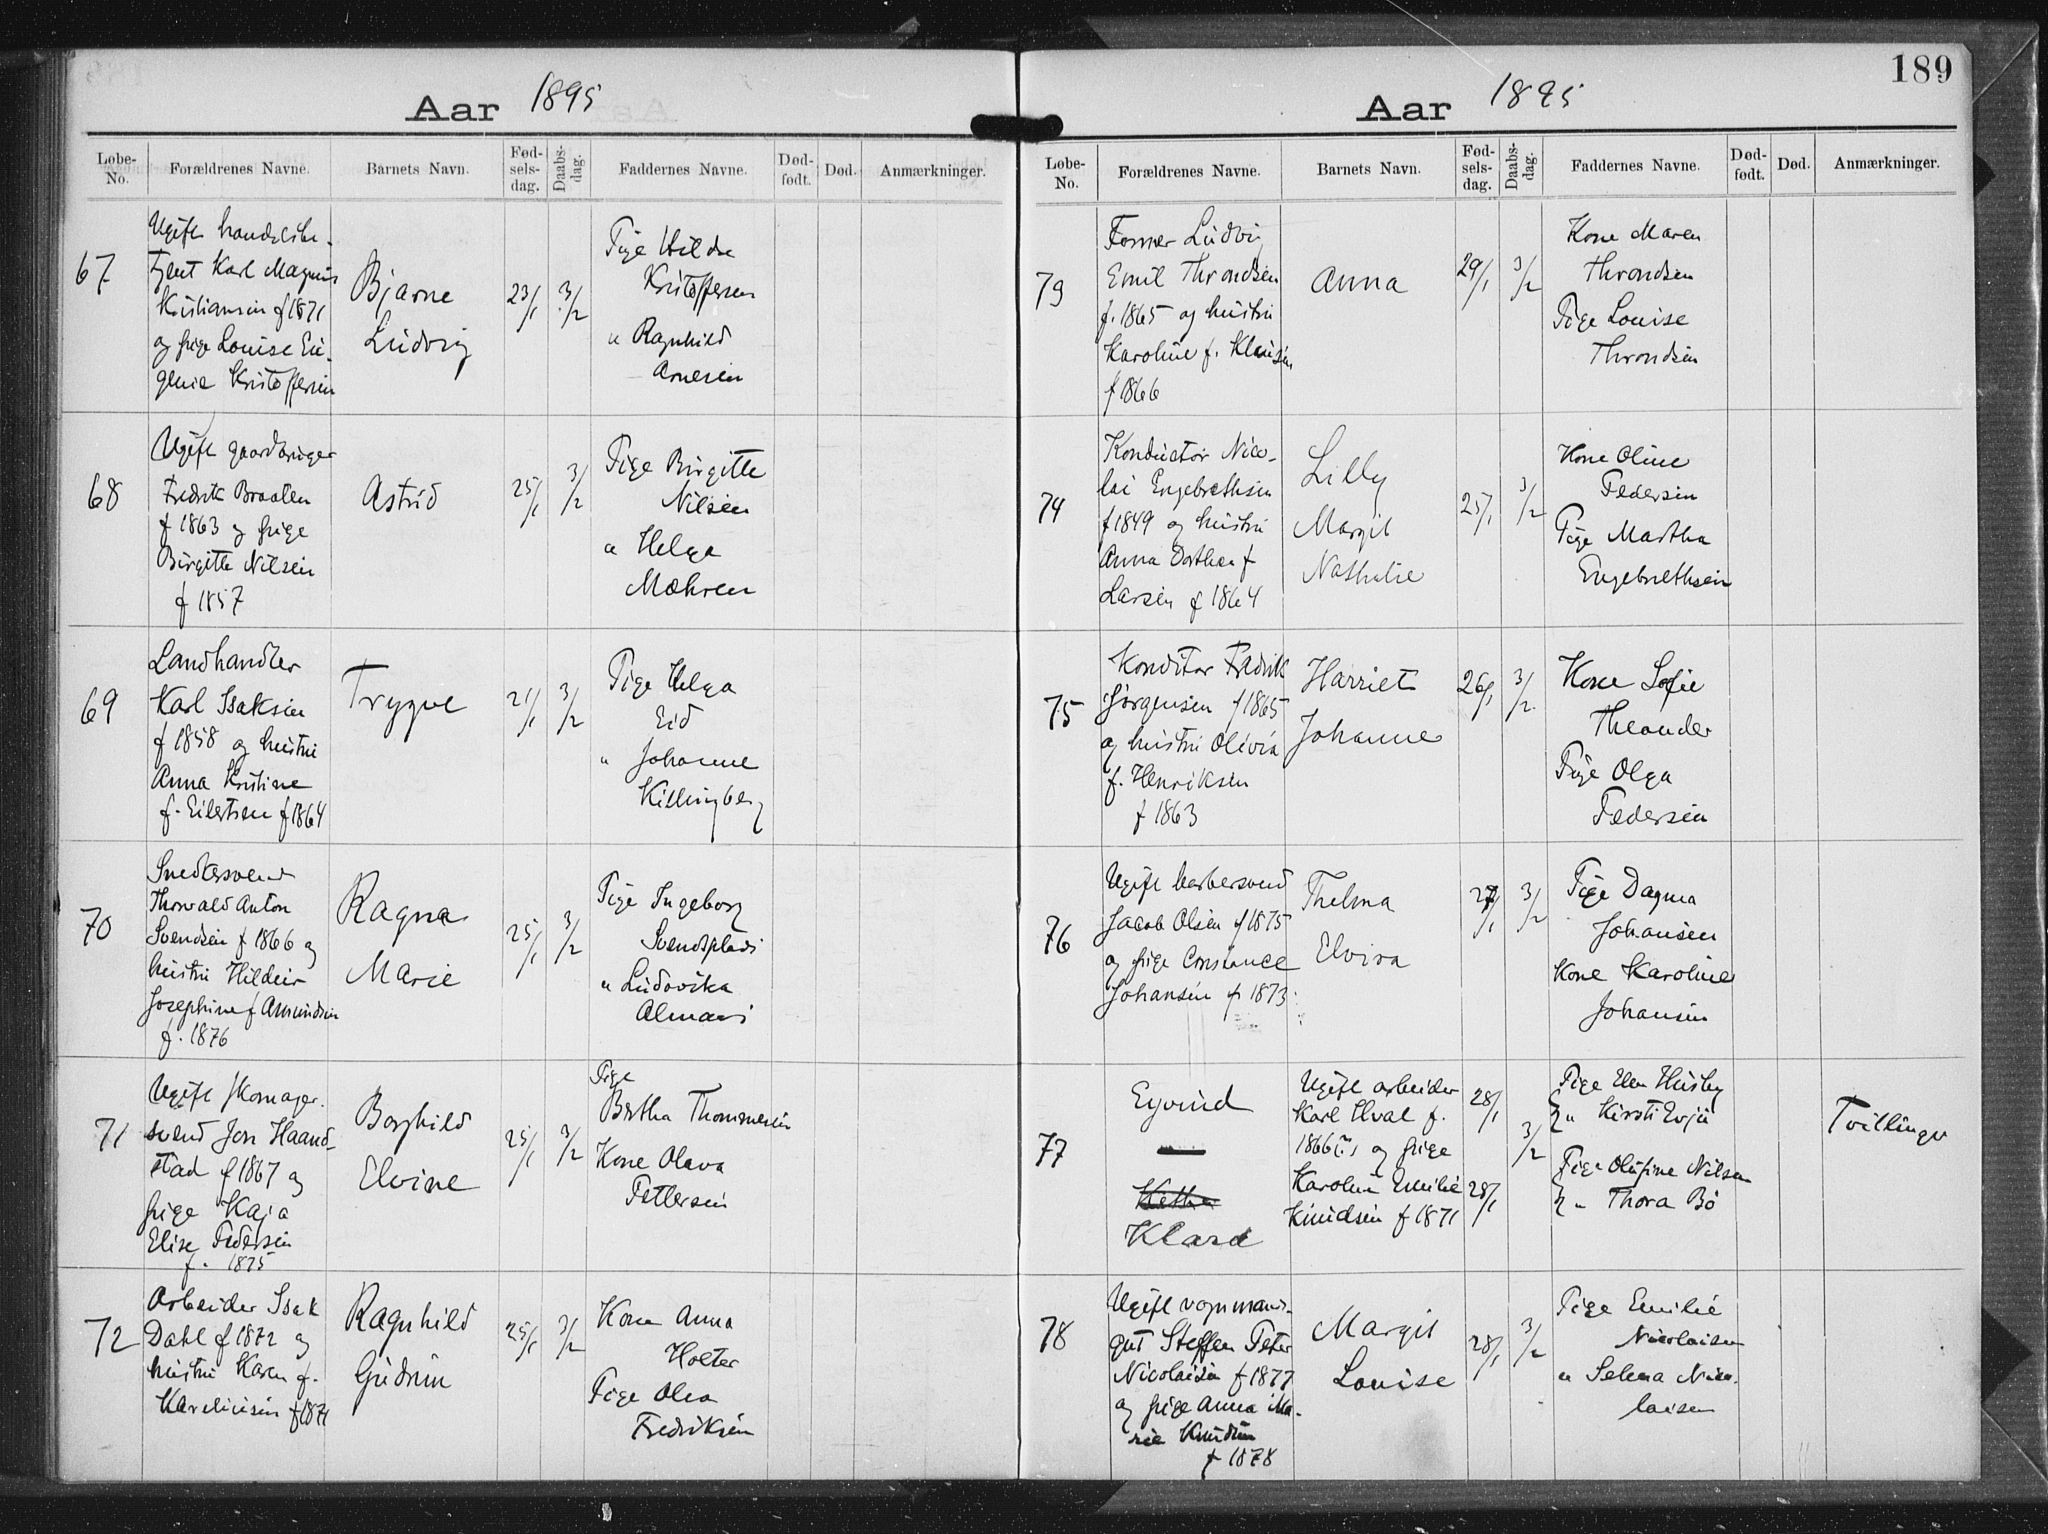 Aar 1895
Løbe-No.
Forældrenes Navne.
Barnets Navn.
Fød-sels-dag.
Daabs-dag.
Faddernes Navne.
Død-født.
Død.
Anmærkninger.
67
Ugift
Karl Magnus
Kristiansen f 1871
og pige Louise Eu-
genie Kristoffersen
Bjarne
Ludvig
23/1
3/2
Pige Hilda
Kristoffersen
" Ragnhild
Arnesen
68
Ugift gaardbruger
Fredrik Braaten
f 1863 og pige
Birgitte Nilsen
f 1857
Astrid
25/1
3/2
Pige Birgitte
Nilsen
" Helga
Mæhren
69
Landhandler
Karl Isaksen
f 1858 og hustru
Anna Kristine
f. Eilertsen f 1864
Trygve
21/1
3/2
Pige Helga
Eid
" Johanne
Killingberg
70
Snedkersvend
Thorvald Anton
Svendsen f 1866 og
hustru Hildeur
Josephine f Amundsen
f. 1876
Ragna
Marie
25/1
3/2
Pige Ingeborg
Svendsplads
" Ludovika
71
Ugift skomager-
svend Jon Haand-
stad f 1867 og
pige Kaja
Elise Pedersen
f. 1875
Borghild
Elvine
25/1
3/2
Pige
Bertha Thommesen
Kone Olava
Pettersen
72
Arbeider Isak
Dahl f 1872 og
hustru Karen f.
Kareliusen f 1871
Ragnhild
Gudrun
25/1
3/2
Kone Anna
Holter
Pige Olea
Fredriksen
189
Aar 1895
Løbe-No.
Forældrenes Navne.
Barnets Navn.
Fød-sels-dag.
Daabs-dag.
Faddernes Navne.
Død-født.
Død.
Anmærkninger.
73
Former Ludvig
Emil Throndsen
f. 1865 og hustru
Karoline f. Klausen
f 1866
Anna
29/1
3/2
Kone Maren
Throndsen
Pige Louise
Throndsen
74
Konduktør Nico-
lai Engebrethsen
f 1849 og hustru
Anna Dorthea f
Larsen f 1864
Lilly
Margit
Nathalie
25/1
3/2
Kone Oline
Pedersen
Pige Martha
Engebrethsen
75
Konditor Fredrik
Jørgensen f 1865
og hustru Olivia
f. Henriksen
f 1863
Harriet
Johanne
26/1
3/2
Kone Sofie
Theander
Pige Olga
Pedersen
76
Ugift barbersvend
Jacob Olsen f 1875
og pige Constance
Johansen f 1873
Thelma
Elvira
27/1
3/2
Pige Dagma
Johansen
Kone Karoline
Johansen
77
Eyvind
Klara
Ugift arbeider
Karl Hval f.
1866 og pige
Karolin Emilie
Knudsen f 1871
28/1
28/1
3/2
Pige Elen Husby
" Kirsti Evju
Pige Olufine Nilsen
" Thora Bø
Tvillinger
78
Ugift vognmands-
gut Steffen Peter
Nicolaisen f 1877
og pige Anna Ma-
rie Knudsen
f 1878
Margit
Louise
28/1
3/2
Pige Emilie
Nicolaisen
" Selma Nico-
laisen